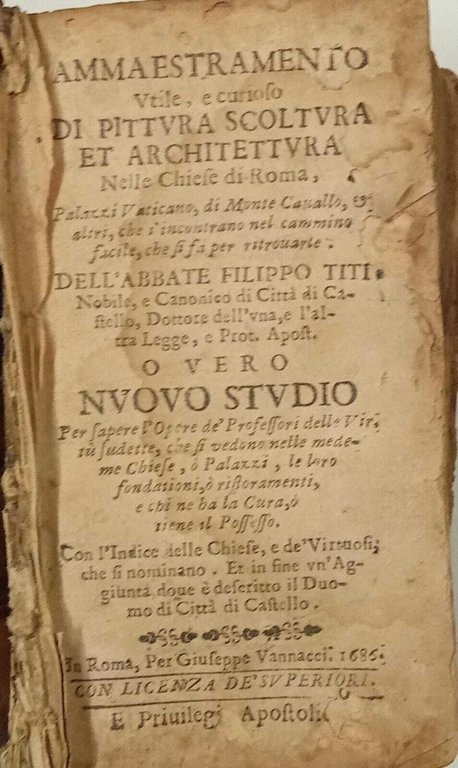 AMMAESTRAMENTO
Vtile, e curioſo
DI PITTVRA SCOLTVRA
ET ARCHITETTVRA
Nelle Chieſe di Roma,
Palazzi Vaticano, di Monte Cauallo, &
altri, che s'incontrano nel cammino
facile, che ſi fa per ritrouarle.
DELL'ABBATE FILIPPO TITI
Nobile, e Canonico di Città di Ca-
ſtello, Dottore dell'vna, e l'al-
tra Legge, e Prot. Apoſt.
O VERO
NVOVO STVDIO
Per ſapere l'Opere de' Profeſſori delle Vir-
tù ſudette, che ſi vedono nelle mede-
me Chieſe, ò Palazzi, le loro
fondationi, ò riſtoramenti,
e chi ne ha la Cura, ò
tiene il Poſſeſſo.
Con l'Indice delle Chieſe, e de' Virtuoſi,
che ſi nominano. Et in fine vn' Ag-
giunta doue è deſcritto il Duo-
mo di Città di Caſtello.
In Roma, Per Giuſeppe Vannacci. 1686.
CON LICENZA DE' SVPERIORI.
E Priuilegj Apoſtoli